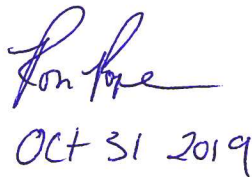 Ron Pope
Oct 31 2019